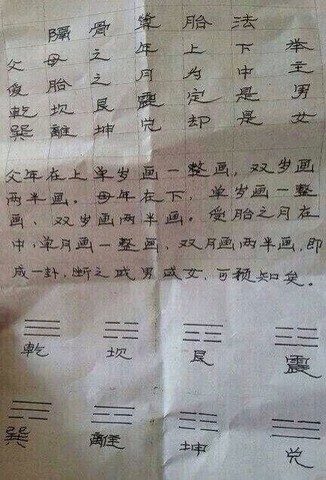 隔骨算胎法
父母之年上下举
受胎之月为中主
乾坎艮震定是男
巽離坤兑却是女
父年在上单岁画一整画，双岁画
两半画。母年在下，单岁画一整
画，双岁画两半画。受胎之月在
中，单月画一整画，双月画两半画，即
成一卦，断之或男或女，可预知矣。
乾 坎 艮 震
巽 離 坤 兑